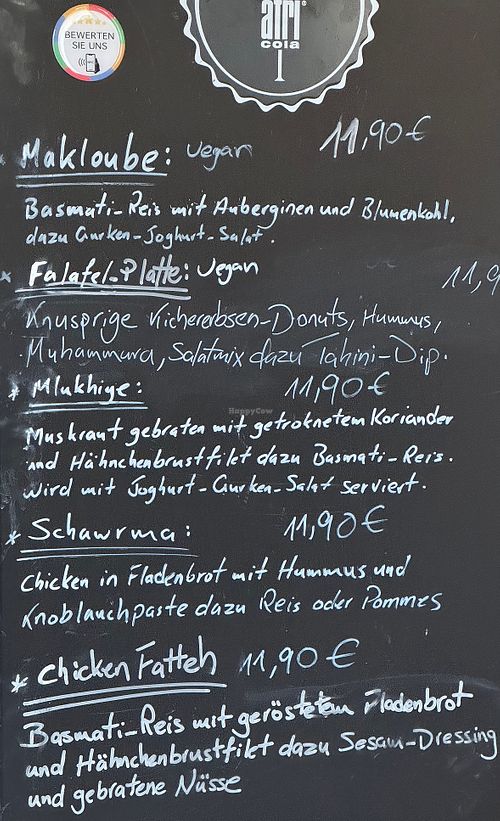 BEWERTEN
SIE UNS
afri
cola
* Makloube: vegan 11,90€
Basmati-Reis mit Auberginen und Blumenkohl,
dazu Gurken-Joghurt-Salat.
* Falafel-Platte: vegan 11,9
Knusprige Kichererbsen-Donuts, Hummus,
Muhammara, Salatmix dazu Tahini-Dip.
* Mlukhiye: 11,90€
Muskraut gebraten mit getroknetem Koriander
und Hähnchenbrustfilet dazu Basmati-Reis.
wird mit Joghurt-Gurken-Salat serviert.
* Schawrma: 11,90€
Chicken in Fladenbrot mit Hummus und
Knoblauchpaste dazu Reis oder Pommes
* Chicken Fatteh 11,90€
Basmati-Reis mit geröstetem Fladenbrot
und Hähnchenbrustfilet dazu Sesam-Dressing
und gebratene Nüsse
HappyCow